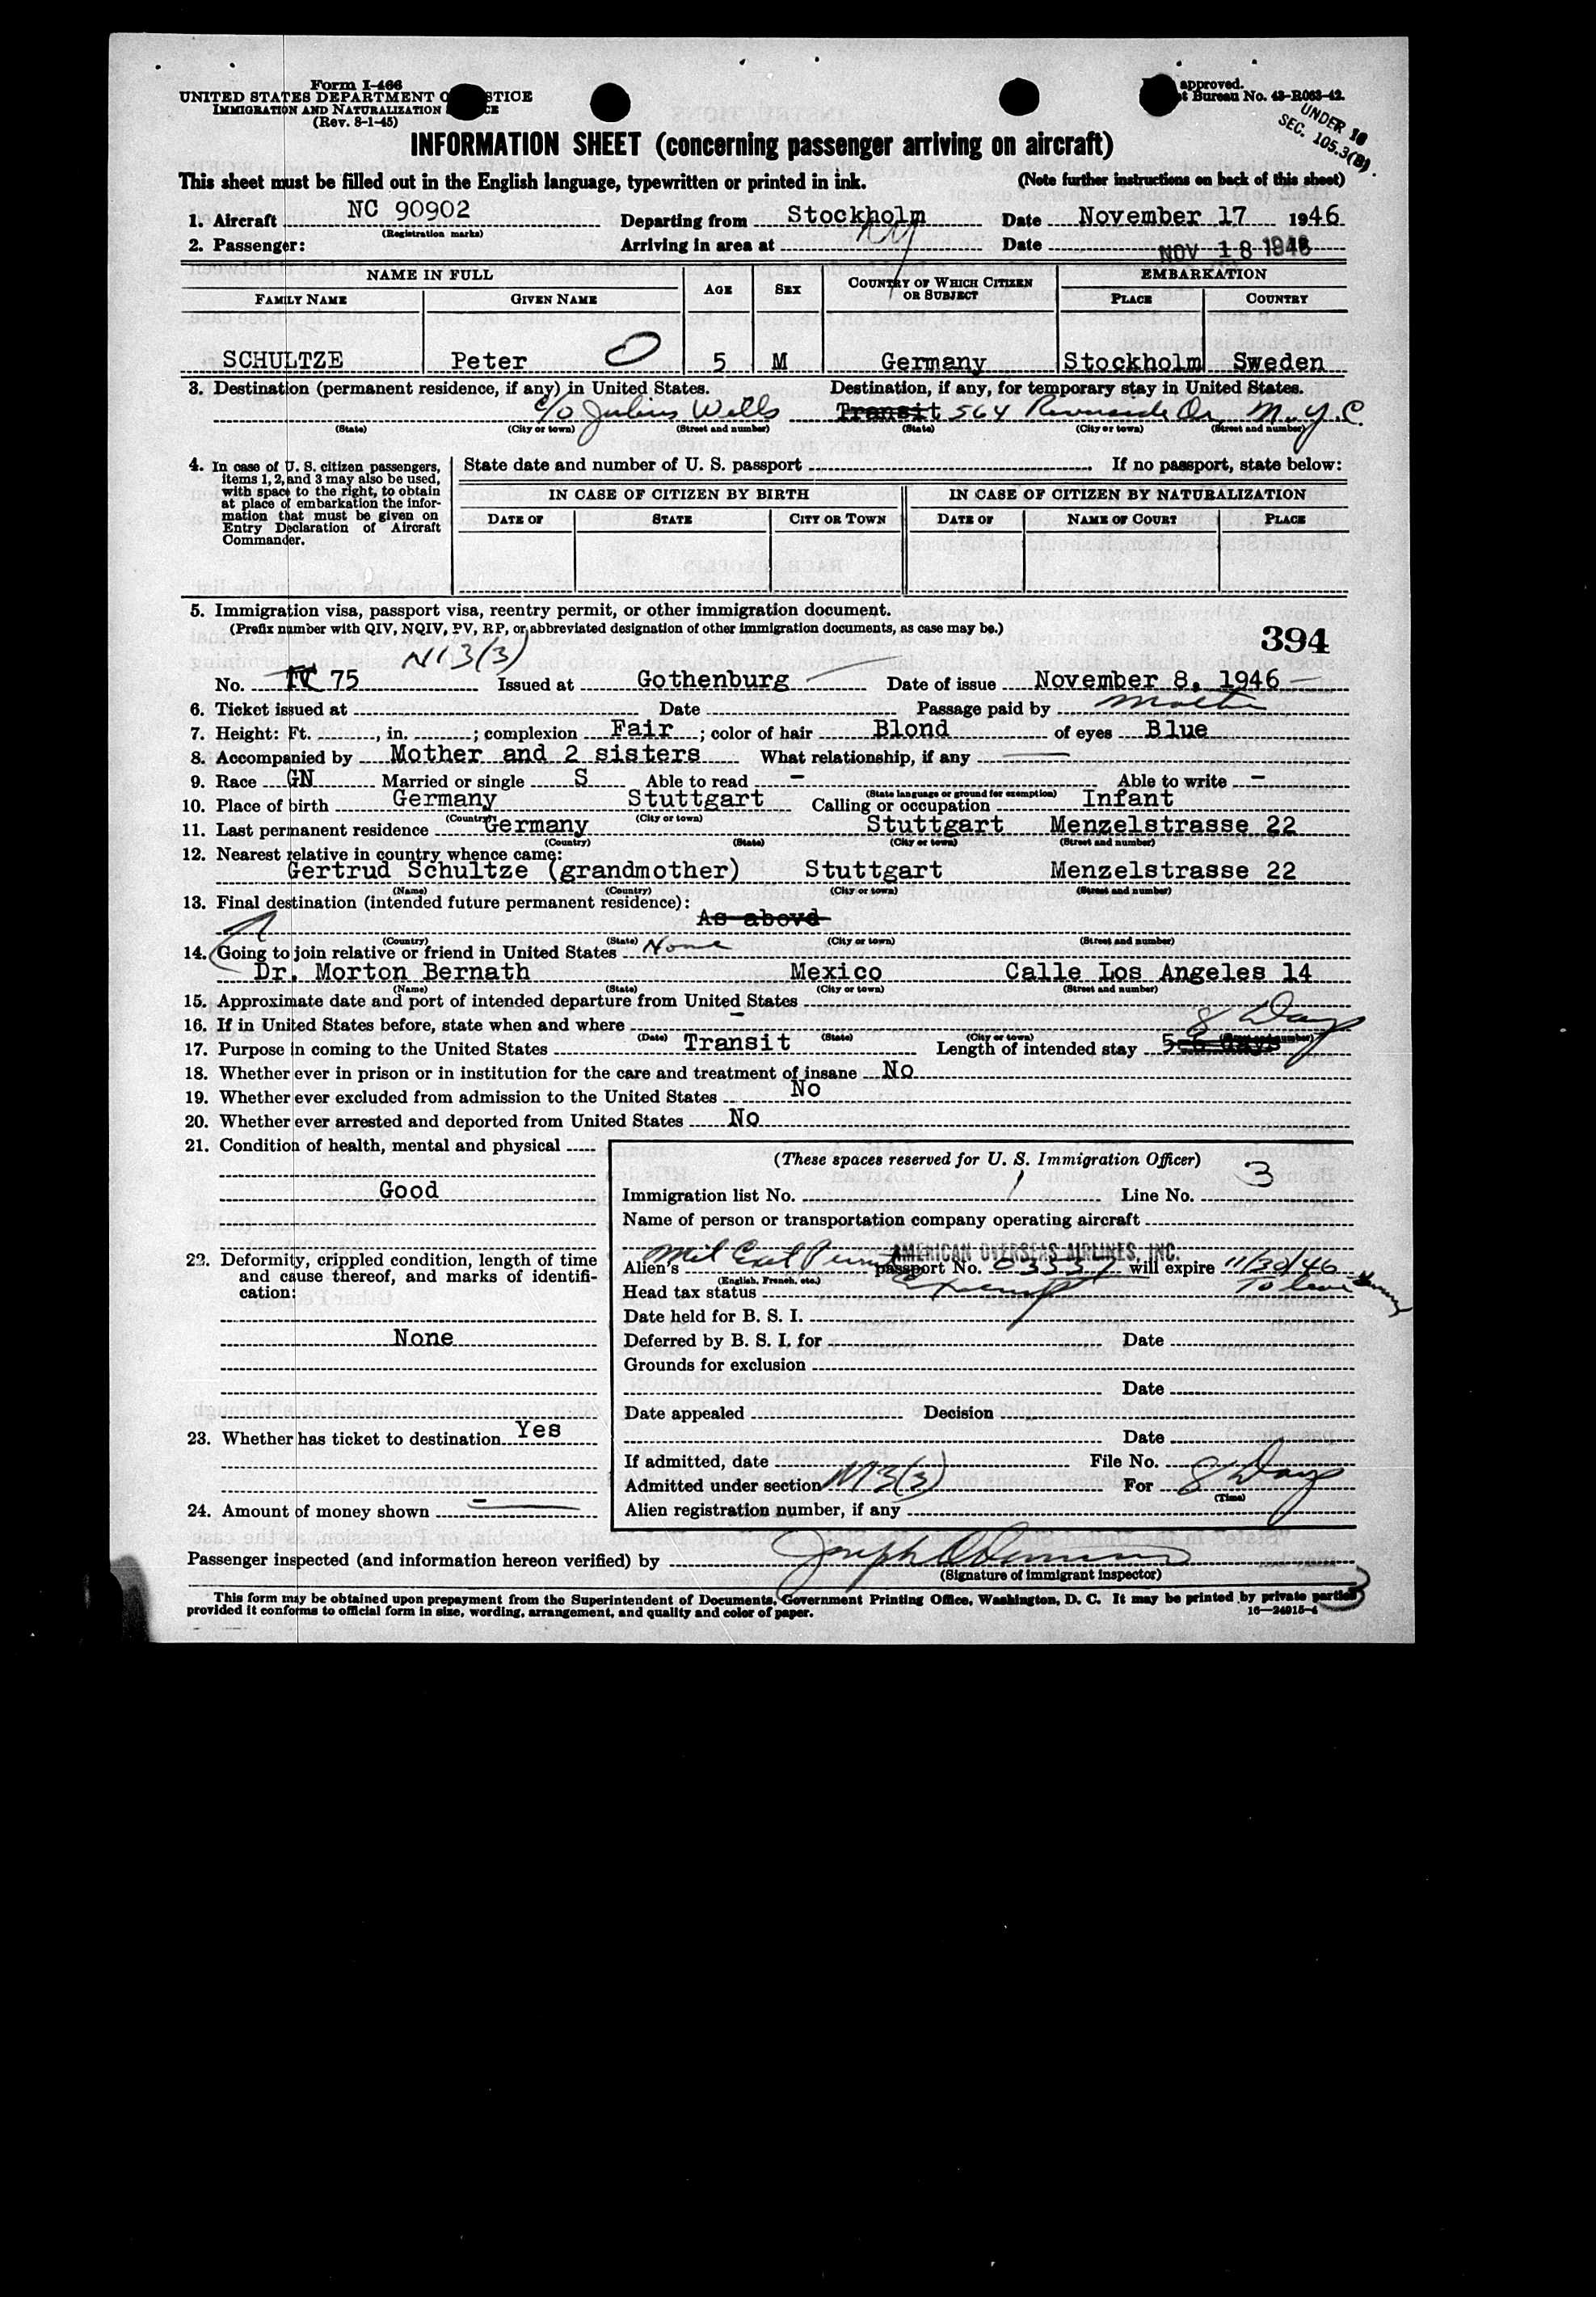 Form I-466
UNITED STATES DEPARTMENT O STICE
IMMIGRATION AND NATURALIZATION CE
(Rev. 8-1-45)
approved.
t Bureau No. 43-R063-42.
UNDER 16
SEC. 105.3(B).
INFORMATION SHEET (concerning passenger arriving on aircraft)
This sheet must be filled out in the English language, typewritten or printed in ink. (Note further instructions on back of this sheet)
1. Aircraft NC 90902 Departing from Stockholm Date November 17 1946
(Registration marks)
2. Passenger: Arriving in area at NY Date NOV 18 1946
NAME IN FULL AGE SEX COUNTRY OF WHICH CITIZEN OR SUBJECT EMBARKATION
FAMILY NAME GIVEN NAME PLACE COUNTRY
SCHULTZE Peter 5 M Germany Stockholm Sweden
3. Destination (permanent residence, if any) in United States. Destination, if any, for temporary stay in United States.
c/o Julius Wells Transit 564 Riverside Dr. N.Y.C.
(State) (City or town) (Street and number) (State) (City or town) (Street and number)
4. In case of U. S. citizen passengers, items 1, 2, and 3 may also be used, with space to the right, to obtain at place of embarkation the information that must be given on Entry Declaration of Aircraft Commander.
State date and number of U. S. passport If no passport, state below:
IN CASE OF CITIZEN BY BIRTH IN CASE OF CITIZEN BY NATURALIZATION
DATE OF STATE CITY OR TOWN DATE OF NAME OF COURT PLACE
5. Immigration visa, passport visa, reentry permit, or other immigration document.
(Prefix number with QIV, NQIV, PV, RP, or abbreviated designation of other immigration documents, as case may be.)
394
No. TV 75 Issued at Gothenburg Date of issue November 8, 1946
6. Ticket issued at Date Passage paid by Mother
7. Height: Ft. , in. ; complexion Fair ; color of hair Blond of eyes Blue
8. Accompanied by Mother and 2 sisters What relationship, if any
9. Race GN Married or single S Able to read - Able to write -
(State language or ground for exemption)
10. Place of birth Germany Stuttgart Calling or occupation Infant
(Country) (City or town)
11. Last permanent residence Germany Stuttgart Menzelstrasse 22
(Country) (State) (City or town) (Street and number)
12. Nearest relative in country whence came:
Gertrud Schultze (grandmother) Stuttgart Menzelstrasse 22
(Name) (Country) (City or town) (Street and number)
13. Final destination (intended future permanent residence):
As abovd
(Country) (State) (City or town) (Street and number)
14. Going to join relative or friend in United States None
Dr. Morton Bernath Mexico Calle Los Angeles 14
(Name) (State) (City or town) (Street and number)
15. Approximate date and port of intended departure from United States
16. If in United States before, state when and where -
(Date) (State) (City or town) (Street and number)
8 Days
17. Purpose in coming to the United States Transit Length of intended stay 5-6 days
18. Whether ever in prison or in institution for the care and treatment of insane No
19. Whether ever excluded from admission to the United States No
20. Whether ever arrested and deported from United States No
21. Condition of health, mental and physical
Good
22. Deformity, crippled condition, length of time and cause thereof, and marks of identification:
None
23. Whether has ticket to destination Yes
24. Amount of money shown -
(These spaces reserved for U. S. Immigration Officer)
Immigration list No. 1 Line No. 3
Name of person or transportation company operating aircraft
AMERICAN OVERSEAS AIRLINES, INC.
Alien's Mil Exit Permit passport No. 03337 will expire 11/30/46
(English, French, etc.)
Head tax status Exempt To leave
Date held for B. S. I.
Deferred by B. S. I. for Date
Grounds for exclusion
Date
Date appealed Decision
Date
If admitted, date File No.
Admitted under section 3(3) For 8 Days
(Time)
Alien registration number, if any
Passenger inspected (and information hereon verified) by
(Signature of immigrant inspector)
This form may be obtained upon prepayment from the Superintendent of Documents, Government Printing Office, Washington, D. C. It may be printed by private parties
provided it conforms to official form in size, wording, arrangement, and quality and color of paper. 16—24915-4